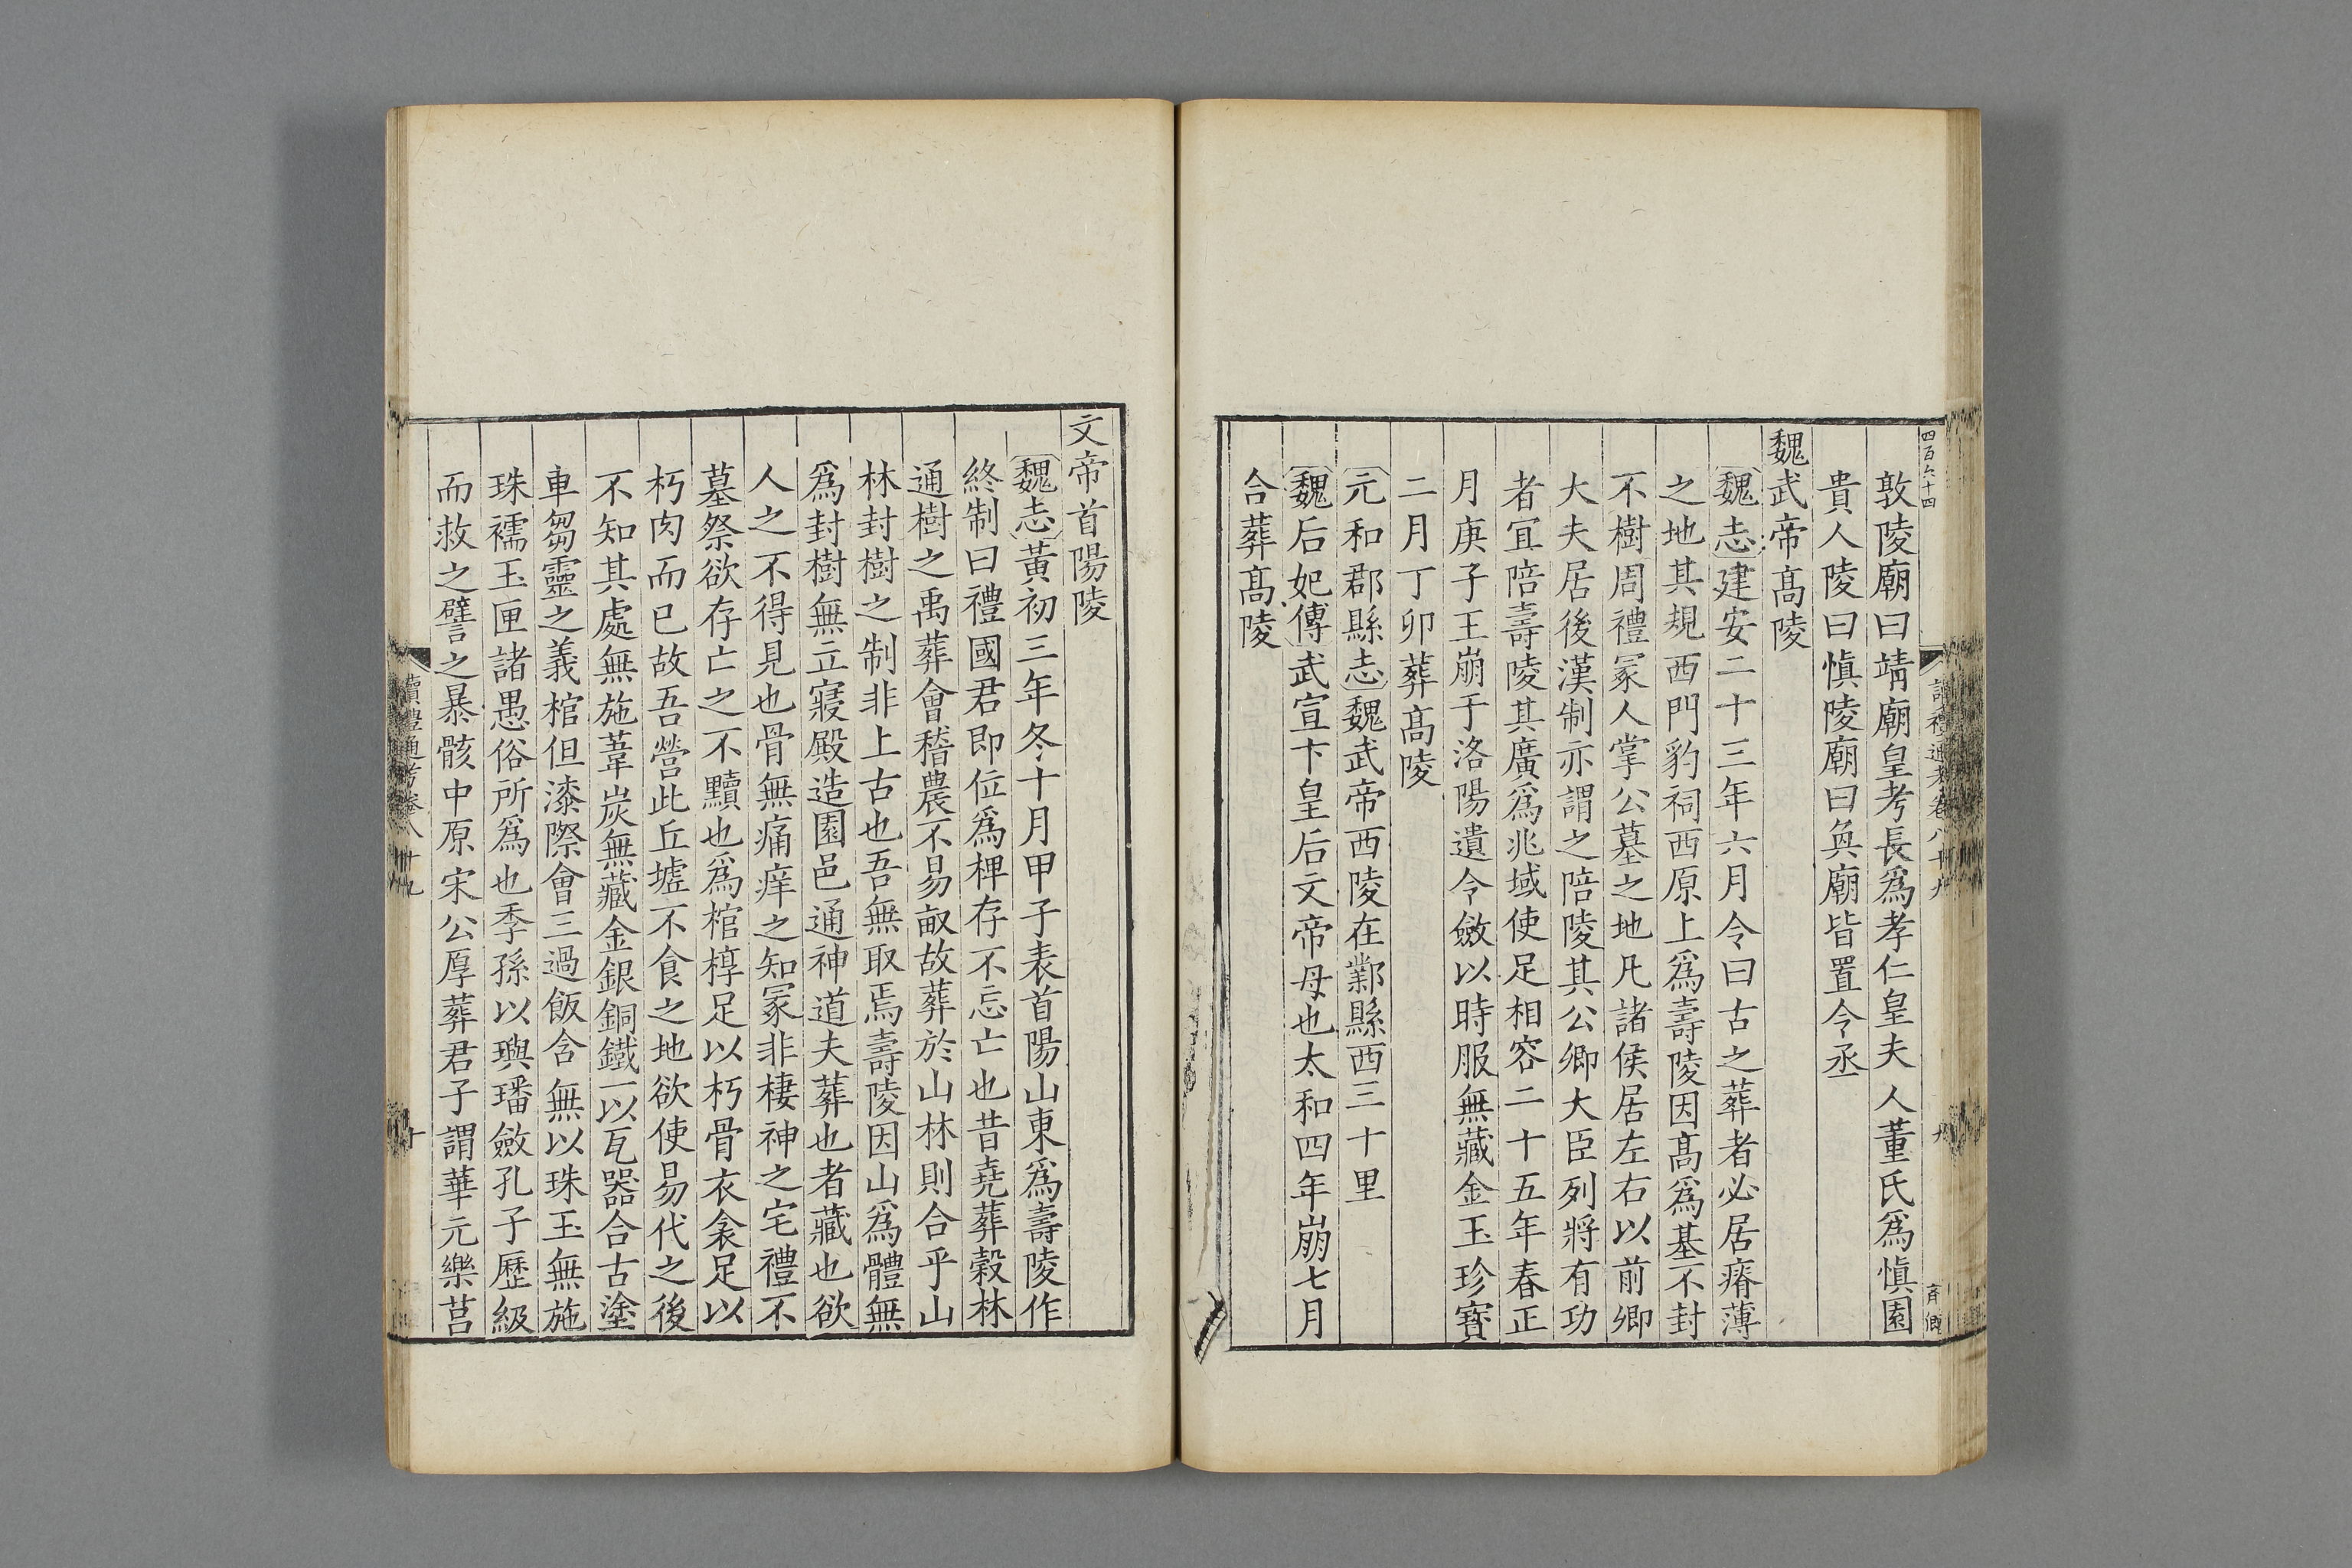 四百六十四
讀禮通考卷八十九
九
敦陵廟曰靖廟皇考長爲孝仁皇夫人董氏爲愼園
貴人陵曰愼陵廟曰奐廟皆置令丞
魏武帝髙陵
魏志建安二十三年六月令曰古之葬者必居瘠薄
之地其規西門豹祠西原上爲壽陵因髙爲基不封
不樹周禮冢人掌公墓之地凡諸侯居左右以前卿
大夫居後漢制亦謂之陪陵其公卿大臣列將有功
者宜陪壽陵其廣爲兆域使足相容二十五年春正
月庚子王崩于洛陽遺令斂以時服無藏金玉珍寶
二月丁卯葬髙陵
元和郡縣志魏武帝西陵在鄴縣西三十里
魏后妃傳武宣卞皇后文帝母也太和四年崩七月
合葬髙陵
文帝首陽陵
魏志黃初三年冬十月甲子表首陽山東爲壽陵作
終制曰禮國君即位爲椑存不忘亡也昔堯葬榖林
通樹之禹葬會稽農不易畝故葬於山林則合乎山
林封樹之制非上古也吾無取焉壽陵因山爲體無
爲封樹無立寢殿造園邑通神道夫葬也者藏也欲
人之不得見也骨無痛痒之知冢非棲神之宅禮不
墓祭欲存亡之不黷也爲棺椁足以朽骨衣衾足以
朽肉而已故吾營此丘墟不食之地欲使易代之後
不知其處無施葦炭無藏金銀銅鐵一以瓦器合古塗
車芻靈之義棺但漆際會三過飯含無以珠玉無施
珠襦玉匣諸愚俗所爲也季孫以璵璠斂孔子歷級
而救之譬之暴骸中原宋公厚葬君子謂華元樂莒
讀禮通考卷八十九
十